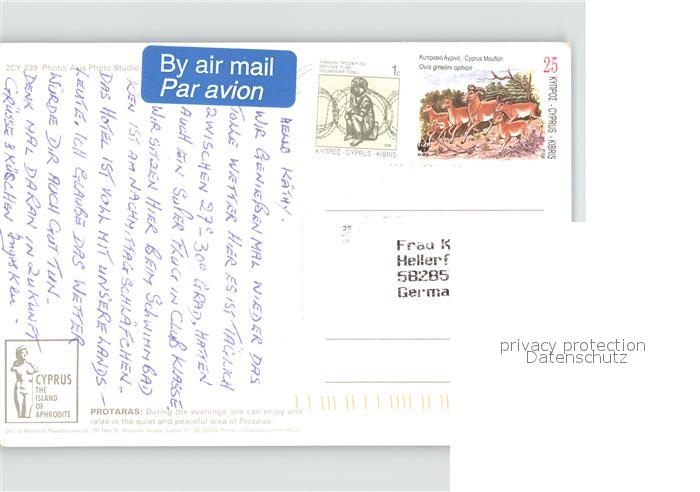 2CY 239 Photo: Alus Photo Studio
By air mail
Par avion
HELLO KÄTHY.
WIR GENIEßEN MAL WIEDER DAS
TOLLE WETTER HIER ES IST TÄGLICH
ZWISCHEN 27°-30° GRAD, HATTEN
AUCH EIN SUPER FLUG IN CLUB KLASSE
WIR SITZEN HIER BEIM SCHWIMMBAD
KEN IST AM NACHMITTAGSCHLÄFCHEN.
DAS HOTEL IST VOLL MIT UNSERE LANDS-
LEUTE. ICH GLAUBE DAS WETTER
WÜRDE DIR AUCH GUT TUN.
DENK MAL DARAN IN ZUKUNFT
GRÜSSE & KÜSCHEN
1c
ΚΥΠΡΟΣ - CYPRUS - KIBRIS
Κυπριακό Αγρινό · Cyprus Moufflon
Ovis gmelini ophion
25
ΚΥΠΡΟΣ - CYPRUS - KIBRIS
Frau K
Hellerf
58285
Germa
privacy protection
Datenschutz
CYPRUS
THE
ISLAND
OF
APHRODITE
PROTARAS: During the evenings one can enjoy and
relax in the quiet and peaceful area of Protaras.